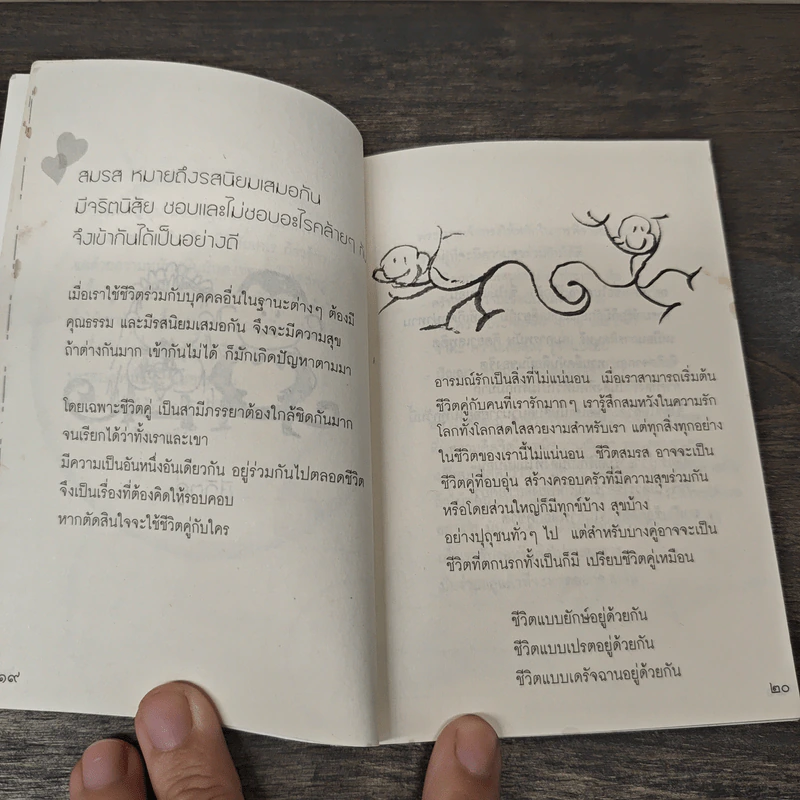 สมรส หมายถึงรสนิยมเสมอกัน
มีจริตนิสัย ชอบและไม่ชอบอะไรคล้ายๆ
จึงเข้ากันได้เป็นอย่างดี
เมื่อเราใช้ชีวิตร่วมกับบุคคลอื่นในฐานะต่างๆ ต้องมี
คุณธรรม และมีรสนิยมเสมอกัน จึงจะมีความสุข
ถ้าต่างกันมาก เข้ากันไม่ได้ ก็มักเกิดปัญหาตามมา
โดยเฉพาะชีวิตคู่ เป็นสามีภรรยาต้องใกล้ชิดกันมาก
จนเรียกได้ว่าทั้งเราและเขา
มีความเป็นอันหนึ่งอันเดียวกัน อยู่ร่วมกันไปตลอดชีวิต
จึงเป็นเรื่องที่ต้องคิดให้รอบคอบ
หากตัดสินใจจะใช้ชีวิตคู่กับใคร
๑๙
อารมณ์รักเป็นสิ่งที่ไม่แน่นอน เมื่อเราสามารถเริ่มต้น
ชีวิตคู่กับคนที่เรารักมากๆ เรารู้สึกสมหวังในความรัก
โลกทั้งโลกสดใสสวยงามสำหรับเรา แต่ทุกสิ่งทุกอย่าง
ในชีวิตของเรานี้ไม่แน่นอน ชีวิตสมรส อาจจะเป็น
ชีวิตคู่ที่อบอุ่น สร้างครอบครัวที่มีความสุขร่วมกัน
หรือโดยส่วนใหญ่ก็มีทุกข์บ้าง สุขบ้าง
อย่างปุถุชนทั่วๆ ไป แต่สำหรับบางคู่อาจจะเป็น
ชีวิตที่ตกนรกทั้งเป็นก็มี เปรียบชีวิตคู่เหมือน
ชีวิตแบบยักษ์อยู่ด้วยกัน
ชีวิตแบบเปรตอยู่ด้วยกัน
ชีวิตแบบเดรัจฉานอยู่ด้วยกัน
๒๐